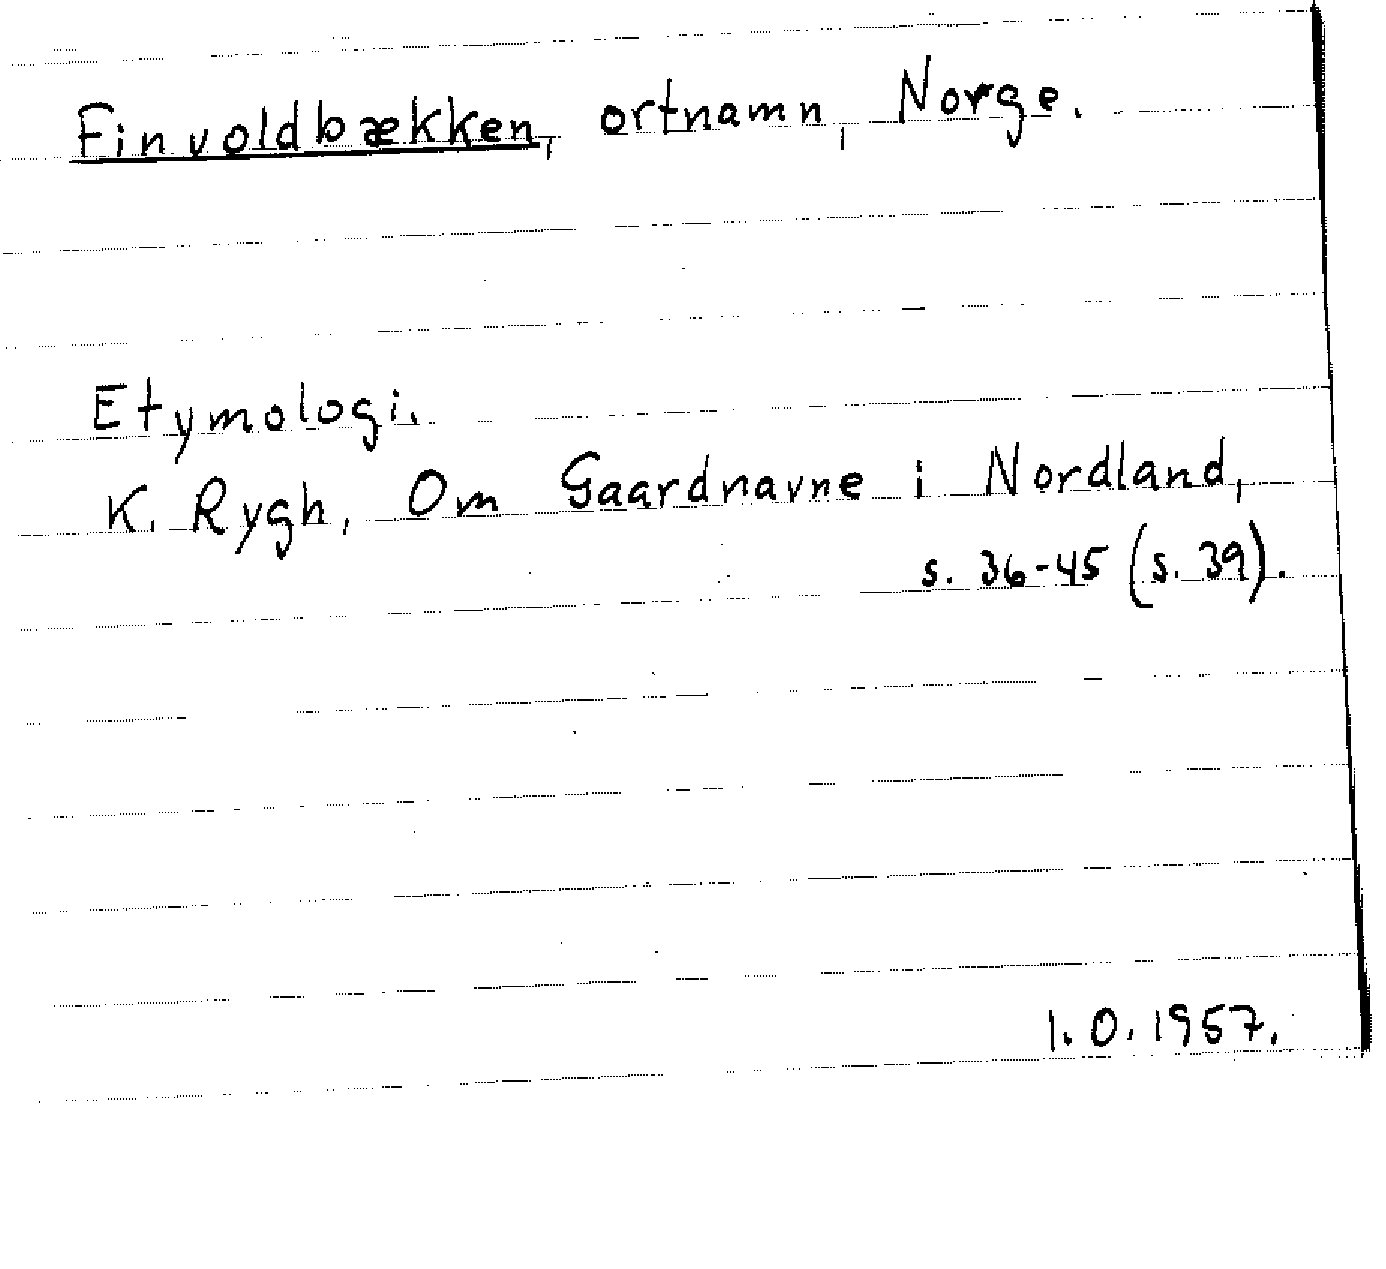 Finvoldbækken, ortnamn, Norge.
Etymologi.
K. Rygh, Om Gaardnavne i Nordland,
s. 36-45 (s. 39).
1.0.1957.